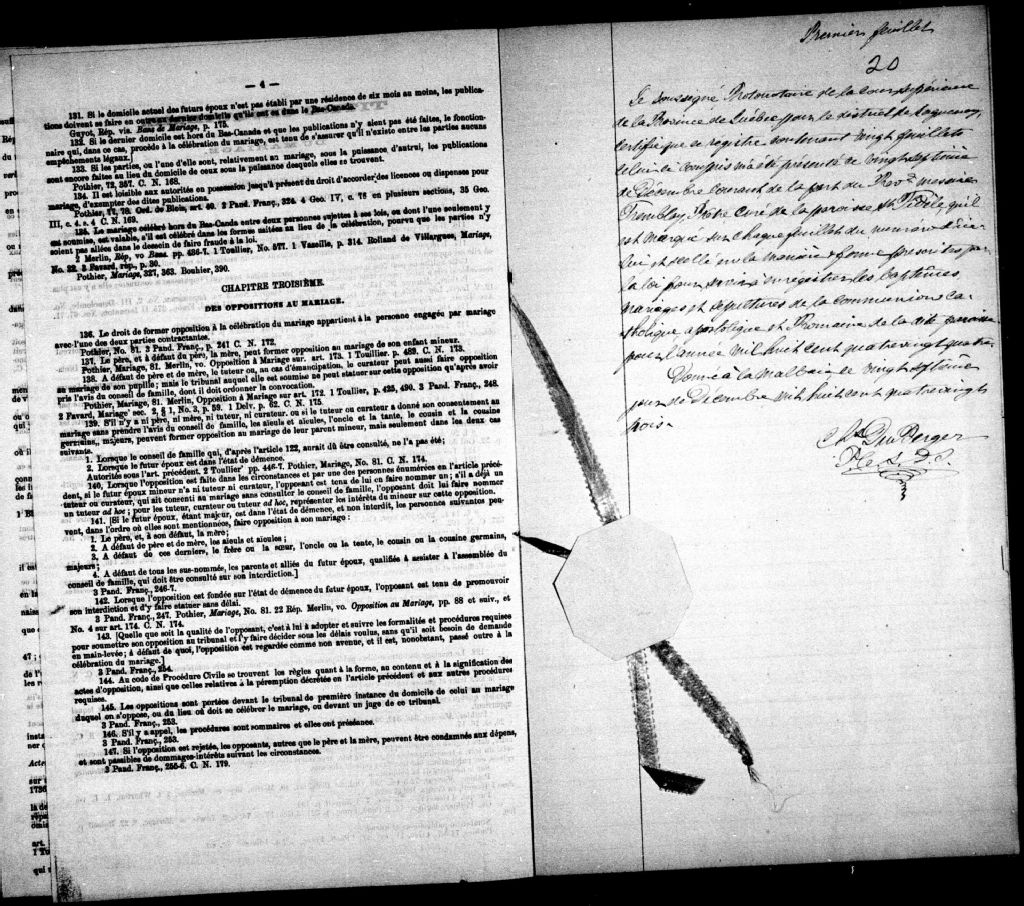 — 4 —
131. Si le domicile actuel des futurs époux n'est pas établi par une résidence de six mois au moins, les publica-
tions doivent se faire en outre au dernier domicile qu'ils ont eu dans le Bas-Canada.
Guyot, Rép. vis. Bans de Mariage, p. 175.
132. Si le dernier domicile est hors du Bas-Canada et que les publications n'y aient pas été faites, le fonction-
naire qui, dans ce cas, procède à la célébration du mariage, est tenu de s'assurer qu'il n'existe entre les parties aucuns
empêchements légaux.]
133. Si les parties, ou l'une d'elles, sont, relativement au mariage, sous la puissance d'autrui, les publications
sont encore faites au lieu du domicile de ceux sous la puissance desquels elles se trouvent.
Pothier, 72, 357. C. N. 168.
134. Il est loisible aux autorités en possession jusqu'à présent du droit d'accorder des licences ou dispenses pour
mariage, d'exempter des dites publications.
Pothier, 77, 78. Ord. de Blois, art. 40. 2 Pand. Franç., 324. 4 Geo. IV, c. 76 en plusieurs sections, 35 Geo.
III, c. 4 s. 4 C. N. 169.
135. Le mariage célébré hors du Bas-Canada entre deux personnes sujettes à ses lois, ou dont l'une seulement y
est soumise, est valable, s'il est célébré dans les formes usitées au lieu de la célébration, pourvu que les parties n'y
soient pas allées dans le dessein de faire fraude à la loi.
2 Merlin, Rép, vo Bans. pp. 486-7. 1 Toullier, No. 577. 1 Vazeille, p. 314. Rolland de Villargues, Mariage,
No. 22. 3 Favard, rép., p. 30.
Pothier, Mariage, 327, 363. Bouhier, 390.
CHAPITRE TROISIÈME.
DES OPPOSITIONS AU MARIAGE.
136. Le droit de former opposition à la célébration du mariage appartient à la personne engagée par mariage
avec l'une des deux parties contractantes.
Pothier, No. 81. 3 Pand. Franç., p. 241 C. N. 172.
137. Le père, et à défaut du père, la mère, peut former opposition au mariage de son enfant mineur.
Pothier, Mariage, 81. Merlin, vo. Opposition à Mariage sur. art. 173. 1 Touillier. p. 489. C. N. 173.
138. A défaut de père et de mère, le tuteur ou, au cas d'émancipation, le curateur peut aussi faire opposition
au mariage de son pupille; mais le tribunal auquel elle est soumise ne peut statuer sur cette opposition qu'après avoir
pris l'avis du conseil de famille, dont il doit ordonner la convocation.
Pothier, Mariage, 81. Merlin, Opposition à Mariage sur art. 172. 1 Toullier, p. 425, 490. 3 Pand. Franç., 248.
2 Favard, Mariage' sec. 2, § 1, No. 3, p. 59. 1 Delv. p. 62. C. N. 175.
139. S'il n'y a ni père, ni mère, ni tuteur, ni curateur, ou si le tuteur ou curateur a donné son consentement au
mariage sans prendre l'avis du conseil de famille, les aïeuls et aïeules, l'oncle et la tante, le cousin et la cousine
germains,, majeurs, peuvent former opposition au mariage de leur parent mineur, mais seulement dans les deux cas
suivants.
1. Lorsque le conseil de famille qui, d'après l'article 122, aurait dû être consulté, ne l'a pas été;
2. Lorsque le futur époux est dans l'état de démence.
Autorités sous l'art. précédent. 2 Toullier' pp. 446-7. Pothier, Mariage, No. 81. C. N. 174.
140. Lorsque l'opposition est faite dans les circonstances et par une des personnes énumérées en l'article précé-
dent, si le futur époux mineur n'a ni tuteur ni curateur, l'opposant est tenu de lui en faire nommer un; s'il a déjà un
tuteur ou curateur, qui ait consenti au mariage sans consulter le conseil de famille, l'opposant doit lui faire nommer
un tuteur ad hoc; pour les tuteur, curateur ou tuteur ad hoc, représenter les intérêts du mineur sur cette opposition.
141. [Si le futur époux, étant majeur, est dans l'état de démence, et non interdit, les personnes suivantes peu-
vent, dans l'ordre où elles sont mentionnées, faire opposition à son mariage:
1. Le père, et, à son défaut, la mère;
2. A défaut de père et de mère, les aïeuls et aïeules;
3. A défaut de ces derniers, le frère ou la sœur, l'oncle ou la tante, le cousin ou la cousine germains,
majeurs;
4. A défaut de tous les sus-nommés, les parents et alliés du futur époux, qualifiés à assister à l'assemblée du
conseil de famille, qui doit être consulté sur son interdiction.]
3 Pand. Franç., 246-7.
142. Lorsque l'opposition est fondée sur l'état de démence du futur époux, l'opposant est tenu de promouvoir
son interdiction et d'y faire statuer sans délai.
3 Pand. Franç., 247. Pothier, Mariage, No. 81. 22 Rép. Merlin, vo. Opposition au Mariage, pp. 88 et suiv., et
No. 4 sur art. 174. C. N. 174.
143. [Quelle que soit la qualité de l'opposant, c'est à lui à adopter et suivre les formalités et procédures requises
pour soumettre son opposition au tribunal et l'y faire décider sous les délais voulus, sans qu'il soit besoin de demande
en main-levée; à défaut de quoi, l'opposition est regardée comme non avenue, et il est, nonobstant, passé outre à la
célébration du mariage.]
3 Pand. Franç., 254.
144. Au code de Procédure Civile se trouvent les règles quant à la forme, au contenu et à la signification des
actes d'opposition, ainsi que celles relatives à la péremption décrétée en l'article précédent et aux autres procédures
requises.
145. Les oppositions sont portées devant le tribunal de première instance du domicile de celui au mariage
duquel on s'oppose, ou du lieu où doit se célébrer le mariage, ou devant un juge de ce tribunal.
3 Pand. Franç., 253.
146. S'il y a appel, les procédures sont sommaires et elles ont préséance.
3 Pand. Franç., 253.
147. Si l'opposition est rejetée, les opposants, autres que le père et la mère, peuvent être condamnés aux dépens,
et sont passibles de dommages-intérêts suivant les circonstances.
3 Pand. Franç., 255-6. C. N. 179.
Premier feuillet
20
Le soussigné Protonotaire de la Cour Supérieure
de la Province de Québec pour le district de Saguenay,
certifie que ce registre contenant vingt feuillets
celui ci compris m'a été présenté ce vingt septième
de Décembre courant de la part du Revd messire
Tremblay Prêtre curé de la paroisse St Fidèle, qu'il
est marqué sur chaque feuillet du numéro d'ice-
lui et scellé en la manière & forme prescrites par
la loi pour servir à enregistrer les baptêmes
mariages et sépultures de la communion ca-
tholique apostolique et Romaine de la dite paroisse
pour l'année mil huit cent quatre vingt quatre
Donné à la Malbaie le vingt septième
jour de Décembre mil huit cent quatre vingt
trois
Chs Du Berger
P.C.S.D.S.